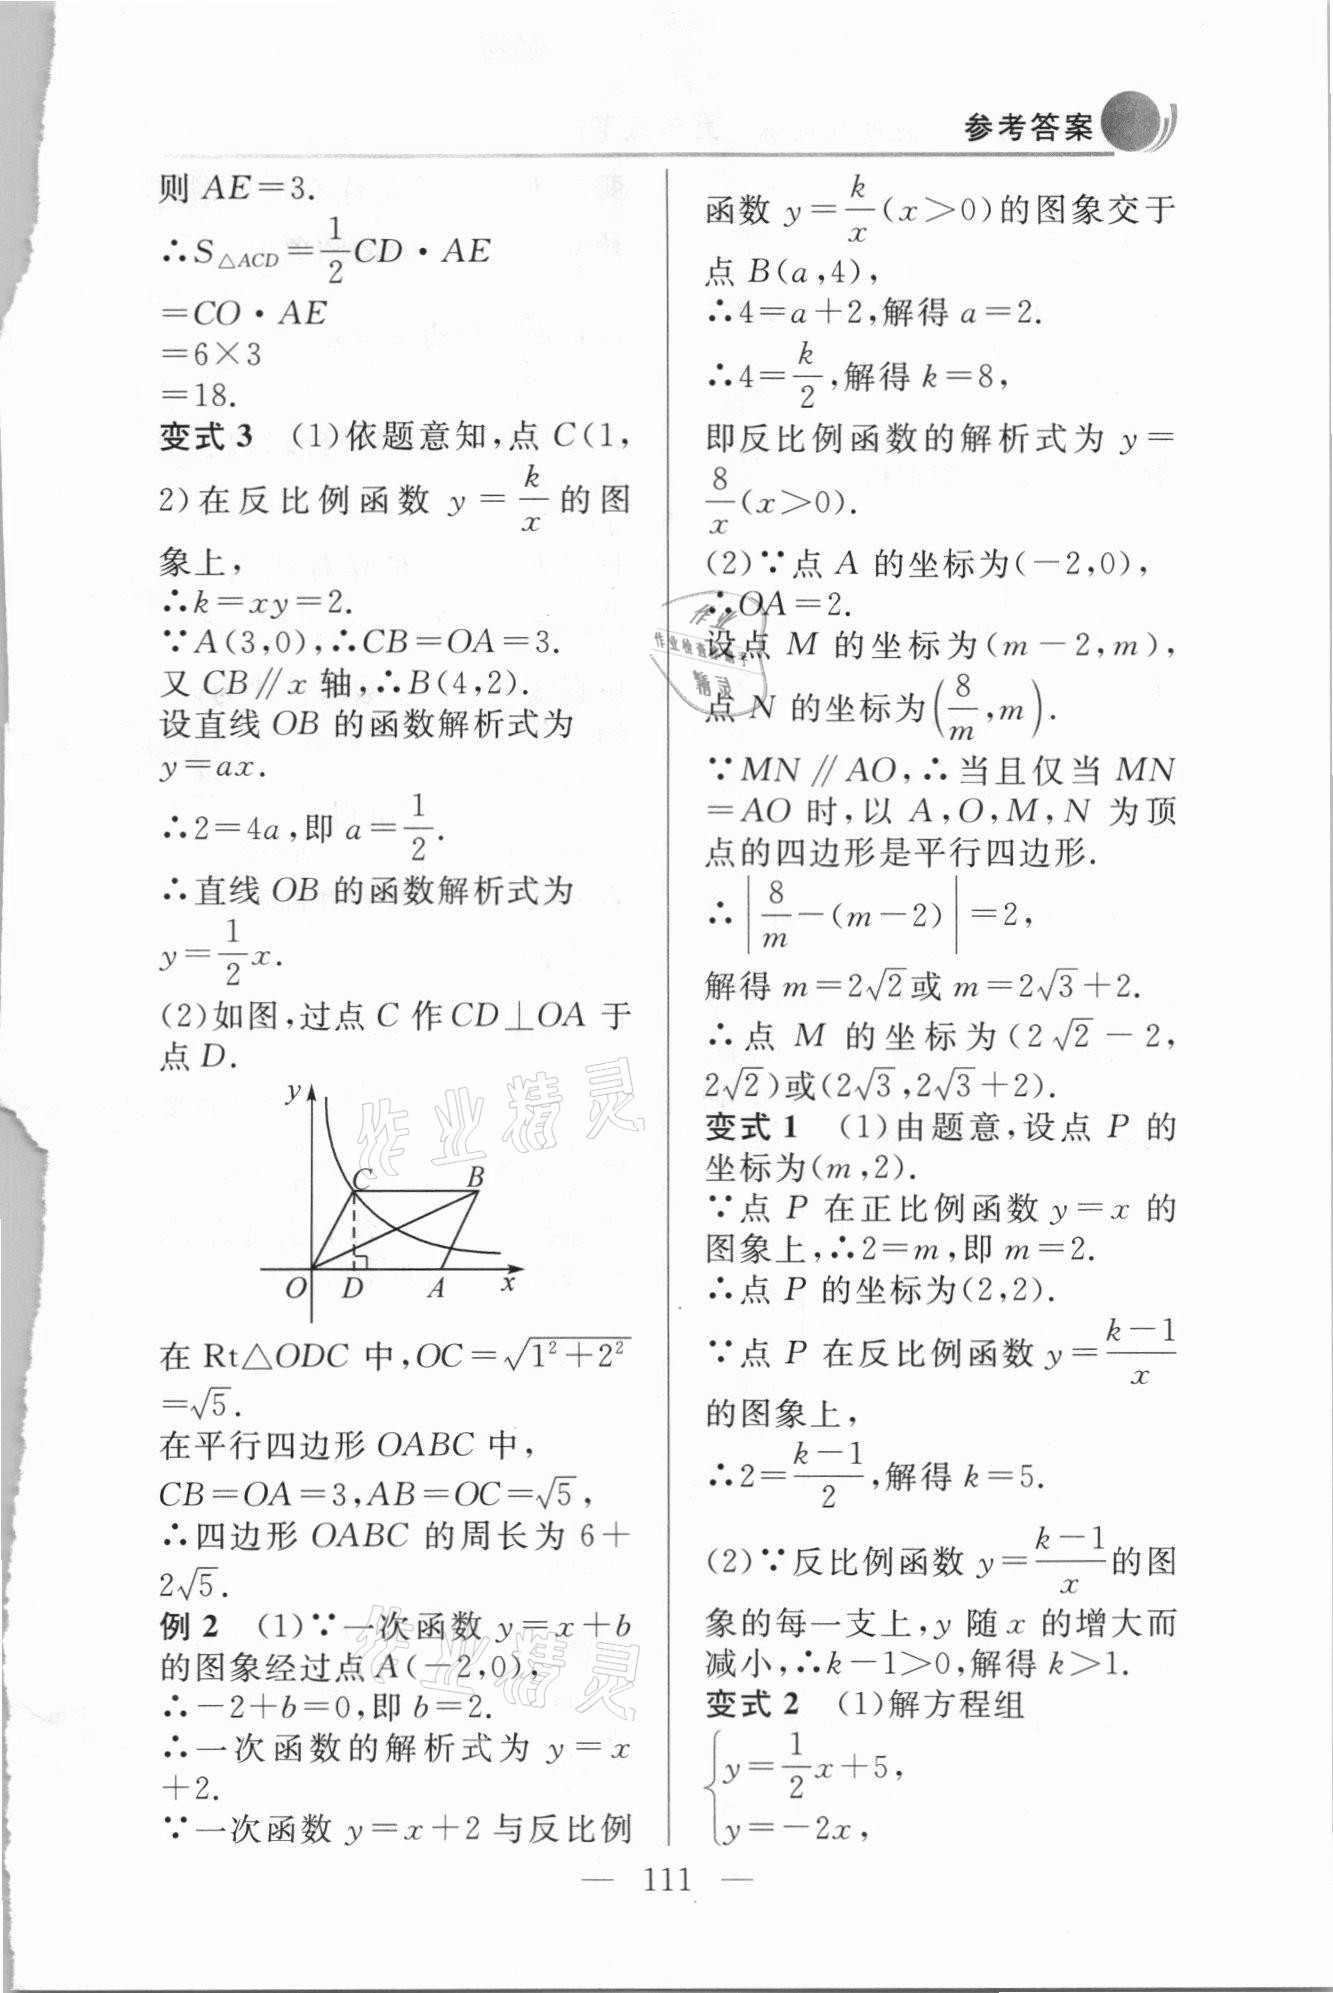 参考答案
则 AE=3.
∴S△ACD=1/2CD·AE
=CO·AE
=6×3
=18.
变式 3 (1)依题意知,点 C(1,
2)在反比例函数 y=k/x 的图
象上,
∴k=xy=2.
∵A(3,0),∴CB=OA=3.
又 CB∥x 轴,∴B(4,2).
设直线 OB 的函数解析式为
y=ax.
∴2=4a,即 a=1/2.
∴直线 OB 的函数解析式为
y=1/2x.
(2)如图,过点 C 作 CD⊥OA 于
点 D.
y
C B
O D A x
在 Rt△ODC 中,OC=√(1²+2²)
=√5.
在平行四边形 OABC 中,
CB=OA=3,AB=OC=√5,
∴四边形 OABC 的周长为 6+
2√5.
例 2 (1)∵一次函数 y=x+b
的图象经过点 A(-2,0),
∴-2+b=0,即 b=2.
∴一次函数的解析式为 y=x
+2.
∵一次函数 y=x+2 与反比例
函数 y=k/x(x>0)的图象交于
点 B(a,4),
∴4=a+2,解得 a=2.
∴4=k/2,解得 k=8,
即反比例函数的解析式为 y=
8/x(x>0).
(2)∵点 A 的坐标为(-2,0),
∴OA=2.
设点 M 的坐标为(m-2,m),
点 N 的坐标为(8/m,m).
∵MN∥AO,∴当且仅当 MN
=AO 时,以 A,O,M,N 为顶
点的四边形是平行四边形.
∴|8/m-(m-2)|=2,
解得 m=2√2或 m=2√3+2.
∴点 M 的坐标为(2√2-2,
2√2)或(2√3,2√3+2).
变式 1 (1)由题意,设点 P 的
坐标为(m,2).
∵点 P 在正比例函数 y=x 的
图象上,∴2=m,即 m=2.
∴点 P 的坐标为(2,2).
∵点 P 在反比例函数 y=(k-1)/x
的图象上,
∴2=(k-1)/2,解得 k=5.
(2)∵反比例函数 y=(k-1)/x的图
象的每一支上,y 随 x 的增大而
减小,∴k-1>0,解得 k>1.
变式 2 (1)解方程组
{y=1/2x+5,
y=-2x,
— 111 —
作业精灵
作业精灵
作业
精灵